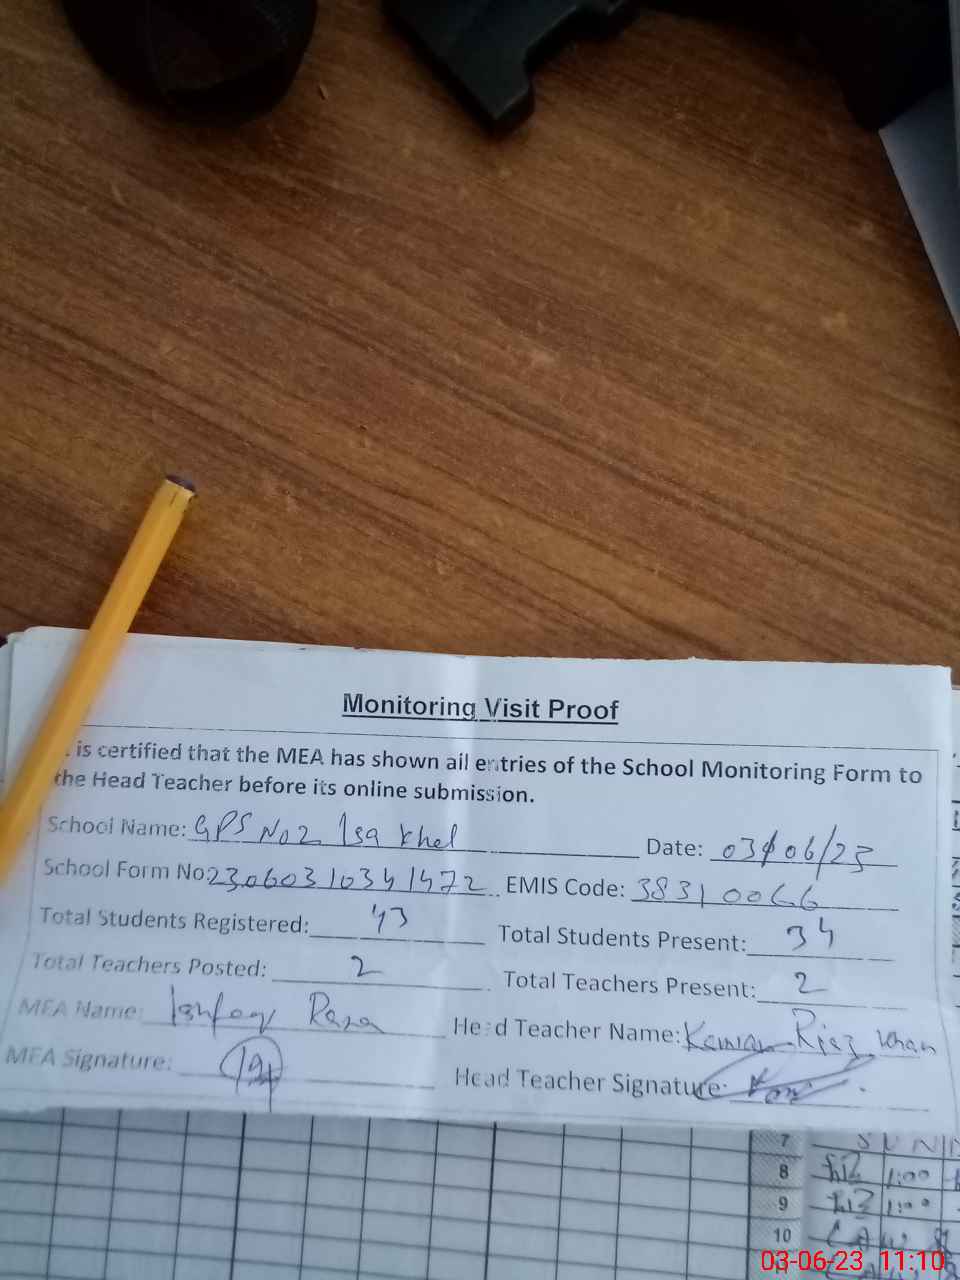 Monitoring Visit Proof
is certified that the MEA has shown all entries of the School Monitoring Form to
the Head Teacher before its online submission.
School Name: GPS No2 Isa Khel Date: 03/06/23
School Form No: 23060310341472 EMIS Code: 38310066
Total Students Registered: 43 Total Students Present: 34
Total Teachers Posted: 2 Total Teachers Present: 2
MEA Name: Ishfaq Raza Head Teacher Name: Kamran Riaz Khan
MEA Signature: Head Teacher Signature:
7 SUN
8 1:00
9 1:00
10
03-06-23 11:10